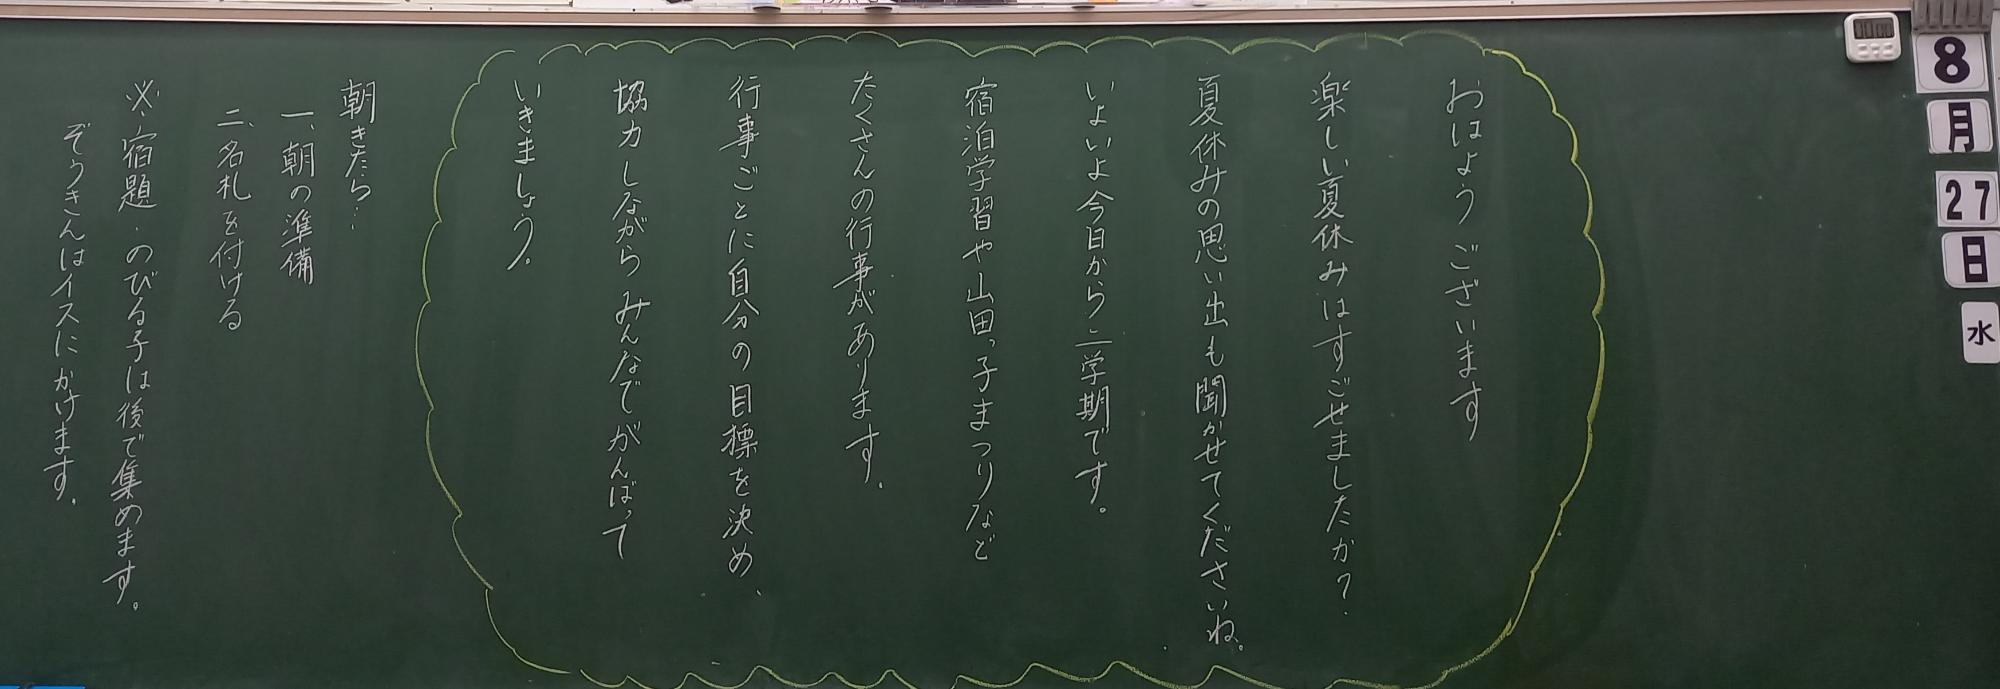 8
月
27
日
水
おはようございます
楽しい夏休みはすごせましたか?
夏休みの思い出も聞かせてくださいね。
いよいよ今日から二学期です。
宿泊学習や山田っ子まつりなど
たくさんの行事があります。
行事ごとに自分の目標を決め、
協力しながらみんなでがんばって
いきましょう。
朝きたら…
一、朝の準備
二、名札を付ける
※宿題・のびる子は後で集めます。
ぞうきんはイスにかけます。